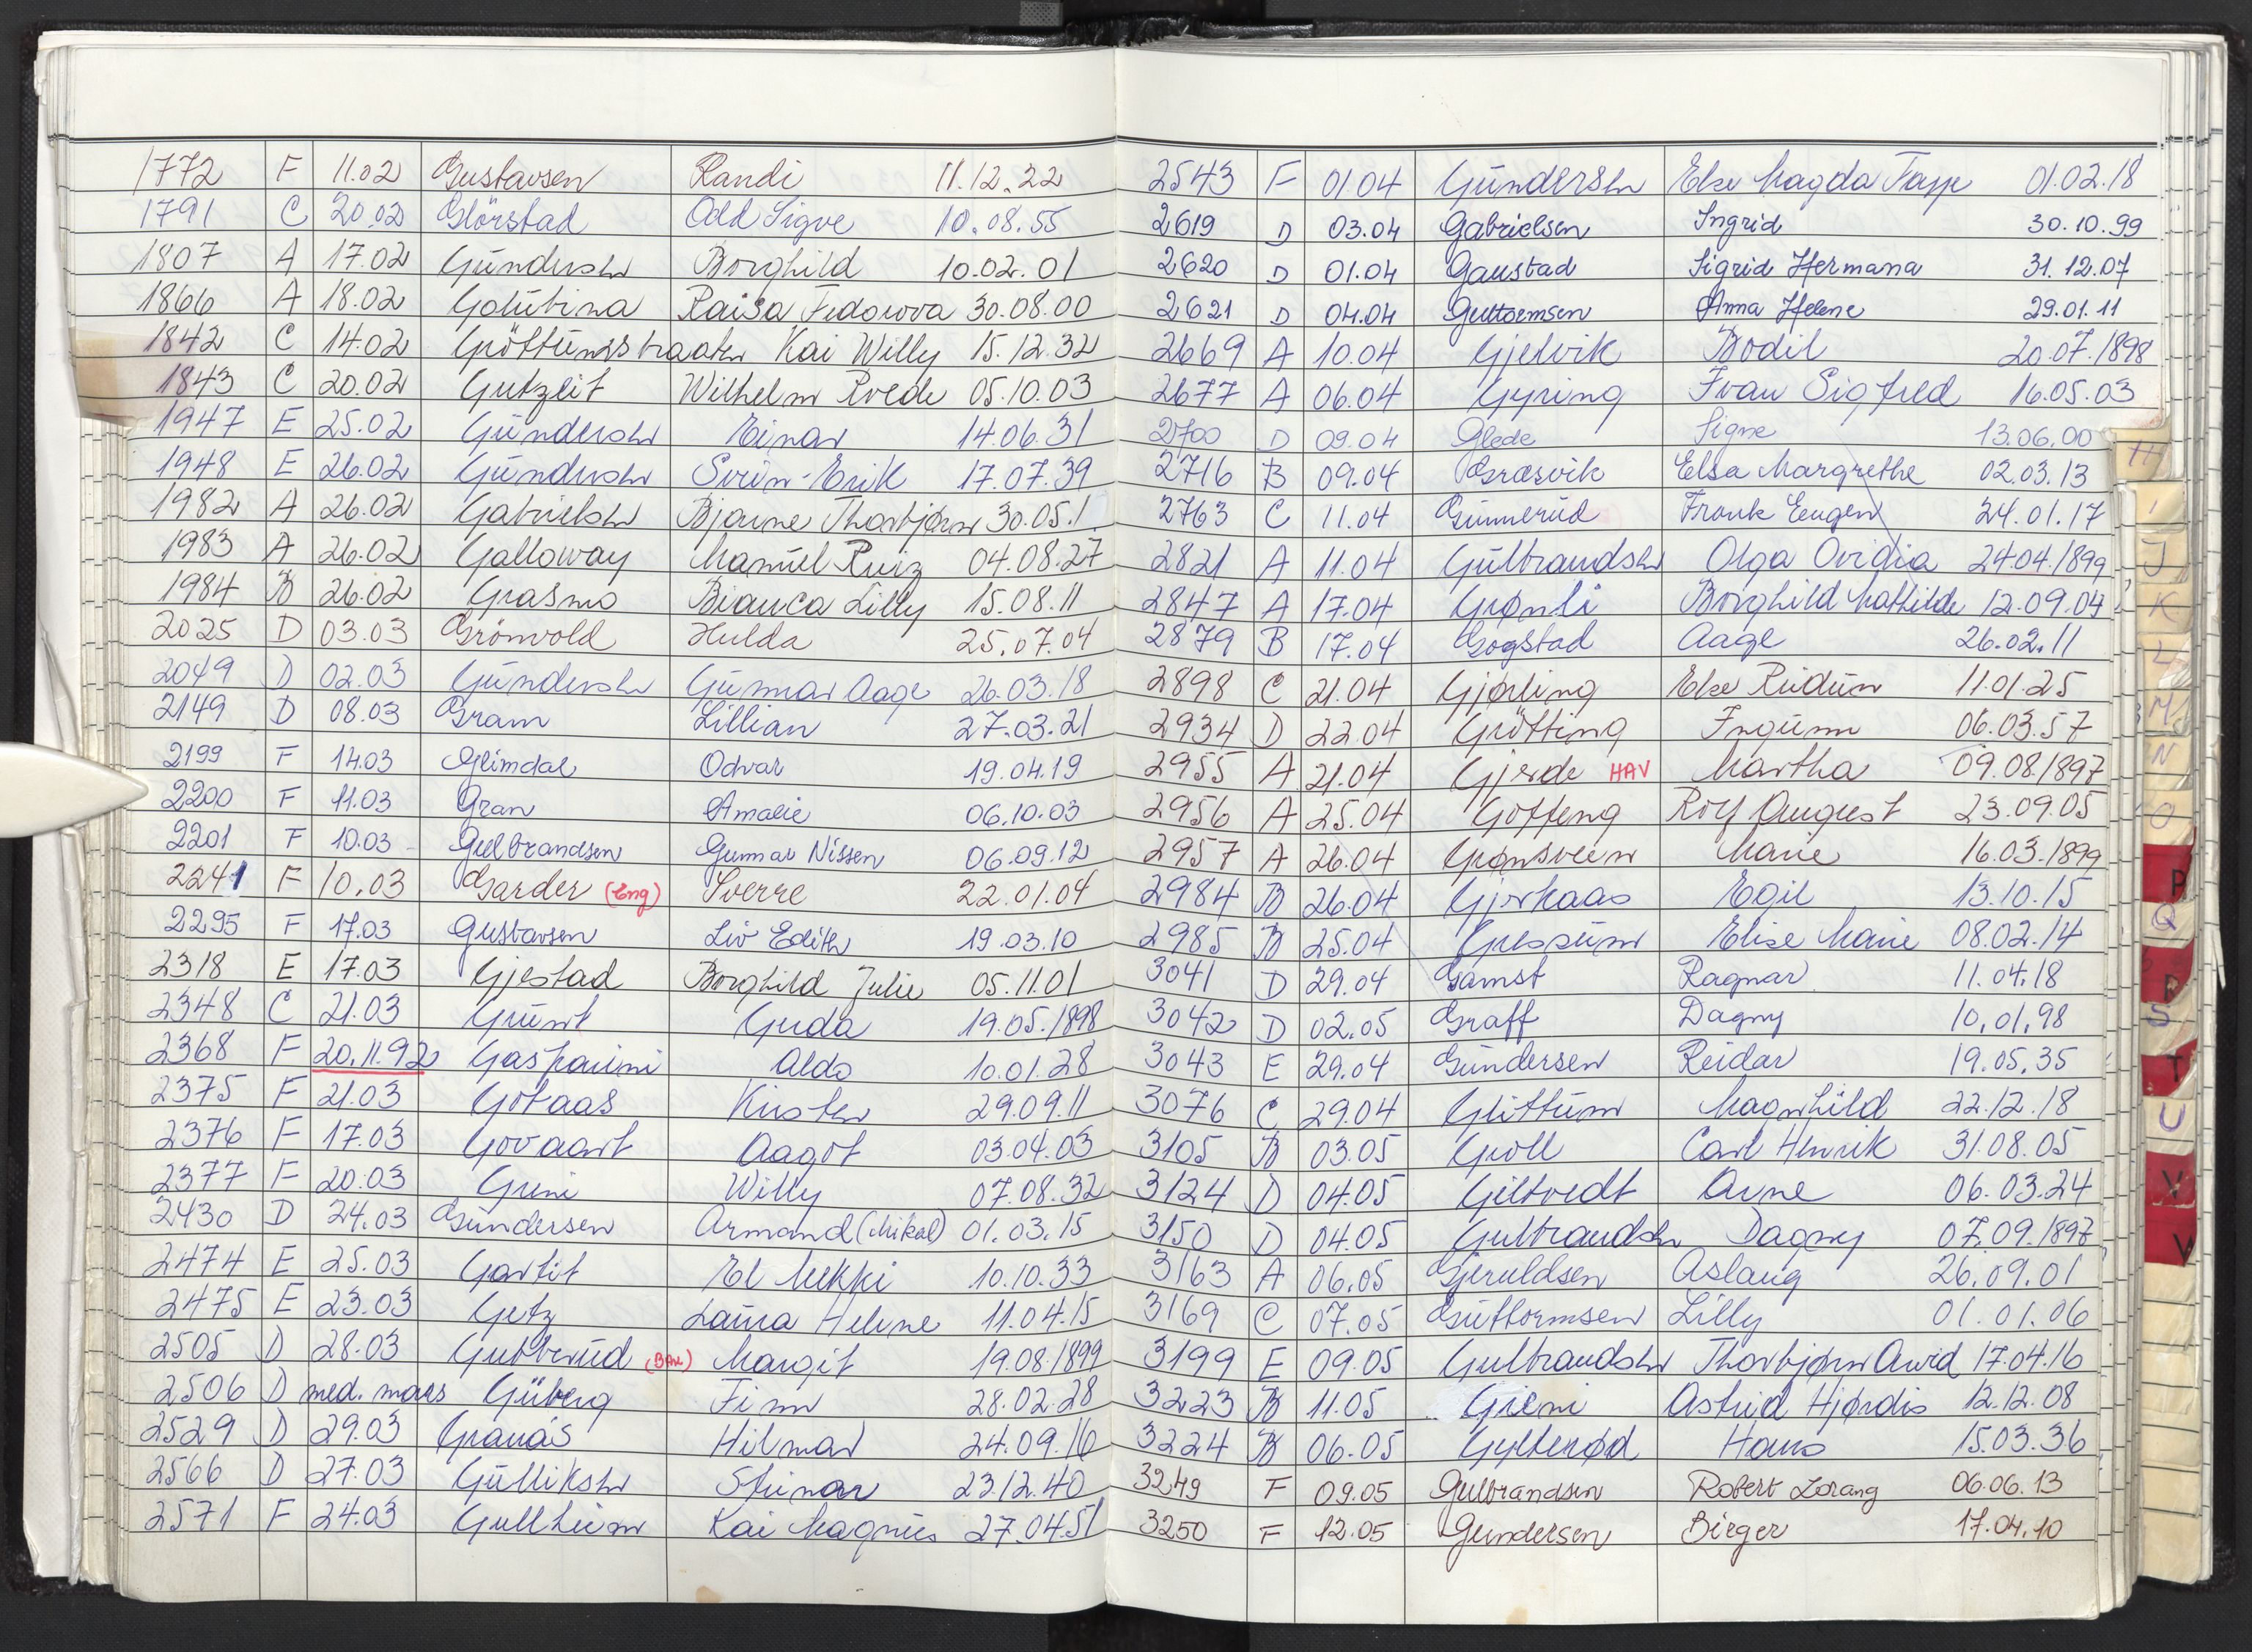 1772 F 11.02 Gustavsen Randi 11.12.22
1791 C 20.02 Glörstad Odd Sigve 10.08.55
1807 A 17.02 Gundersen Borghild 10.02.01
1866 A 18.02 Golubina Raisa Fedorova 30.08.00
1842 C 14.02 Gröttumsbraaten Kai Willy 15.12.32
1843 C 20.02 Gutzeit Wilhelm Roede 05.10.03
1947 E 25.02 Gundersen Einar 14.06.31
1948 E 26.02 Gundersen Svein-Erik 17.07.39
1982 A 26.02 Gabrielsen Bjarne Thorbjørn 30.05.1
1983 A 26.02 Galloway Manuel Ruiz 04.08.27
1984 B 26.02 Grasmo Bianca Lilly 15.08.11
2025 D 03.03 Grönvold Hulda 25.07.04
2049 D 02.03 Gundersen Gunnar Aage 26.03.18
2149 D 08.03 Gram Lillian 27.03.21
2199 F 14.03 Glimdal Odvar 19.04.19
2200 F 11.03 Gran Amalie 06.10.03
2201 F 10.03 Gulbrandsen Gunnar Nissen 06.09.12
2241 F 10.03 Garder (Eng) Sverre 22.01.04
2295 F 17.03 Gustavsen Liv Edith 19.03.10
2318 E 17.03 Gjestad Borghild Julie 05.11.01
2348 C 21.03 Grunt Guda 19.05.1898
2368 F 20.11.92 Gasparini Aldo 10.01.28
2375 F 21.03 Gotaas Kirsten 29.09.11
2376 F 17.03 Govaart Aagot 03.04.03
2377 F 20.03 Grini Willy 07.08.32
2430 D 24.03 Gundersen Armand (Mikal) 01.03.15
2474 E 25.03 Gartit El Mekki 10.10.33
2475 E 23.03 Getz Laura Helene 11.04.15
2505 D 28.03 Gubberud Margit 19.08.1899
2506 D med. mars Guberg Finn 28.02.28
2529 D 29.03 Granås Hilmar 24.09.16
2566 D 27.03 Gulliksen Steinar 23.12.40
2571 F 24.03 Gullheim Kai Magnus 27.04.51
2543 F 01.04 Gundersen Else Magda 01.02.18
2619 D 03.04 Gabrielsen Ingrid 30.10.99
2620 D 01.04 Gaustad Sigrid Hermana 31.12.07
2621 D 04.04 Guttormsen Anna Helene 29.01.11
2669 A 10.04 Gjelvik Bodil 20.07.1898
2677 A 06.04 Gyring Ivan Sigfred 16.05.03
2700 D 09.04 Glede Signe 13.06.00
2716 B 09.04 Græsvik Elsa Margrethe 02.03.13
2763 C 11.04 Gunnerud Frank Eugen 24.01.17
2821 A 11.04 Gulbrandsen Olga Ovidia 24.04.1899
2847 A 17.04 Grønli Borghild Mathilde 12.09.04
2879 B 17.04 Gogstad Aage 26.02.11
2898 C 21.04 Gjørling Else Reidun 11.01.25
2934 D 22.04 Grötting Ingunn 06.03.57
2955 A 21.04 Gjerde HAV Martha 09.08.1897
2956 A 25.04 Gotteng Rolf August 23.09.05
2957 A 26.04 Grønsveen Marie 16.03.1899
2984 B 26.04 Gjerhaas Egil 13.10.15
2985 B 25.04 Gressum Elise Marie 08.02.14
3041 D 29.04 Gamst Ragnar 11.04.18
3042 D 02.05 Graff Dagny 10.01.98
3043 E 29.04 Gundersen Reidar 19.05.35
3076 C 29.04 Glittum Magnhild 22.12.18
3105 B 03.05 Groll Carl Henrik 31.08.05
3124 D 04.05 Giltvedt Arne 06.03.24
3150 D 04.05 Gulbrandsen Dagny 07.09.1897
3163 A 06.05 Gjeruldsen Aslaug 26.09.01
3169 C 07.05 Guttormsen Lilly 01.01.06
3199 E 09.05 Gulbrandsen Thorbjørn Arvid 17.04.16
3223 B 11.05 Grieni Astrid Hjørdis 12.12.08
3224 B 06.05 Gylterød Hans 15.03.36
3249 F 09.05 Gulbrandsen Robert Lorang 06.06.13
3250 F 12.05 Gundersen Birger 17.04.10
H
I
J
K
L
M
N
O
P
Q
R
S
T
U
V